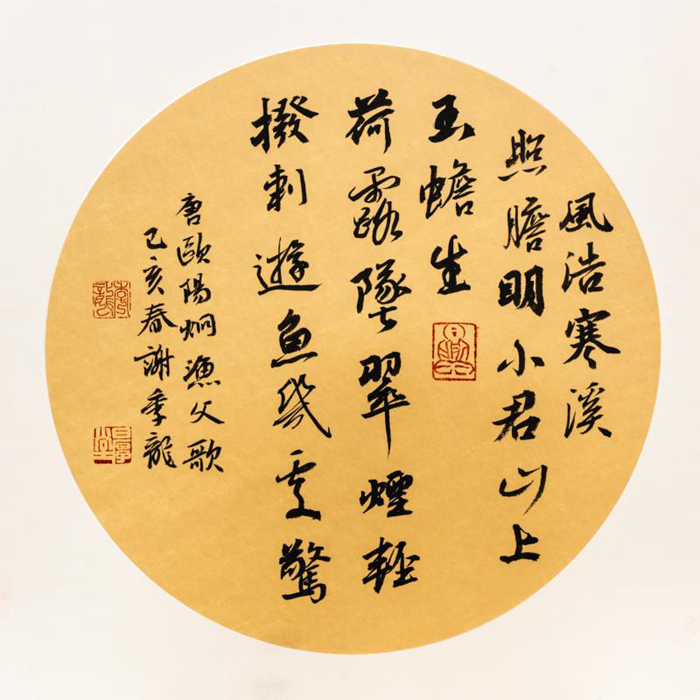 風浩寒溪
照膽明小君山上
玉蟾生
荷露墜翠煙輕
撥剌遊魚幾處驚
唐歐陽炯漁父歌
己亥春謝季龍